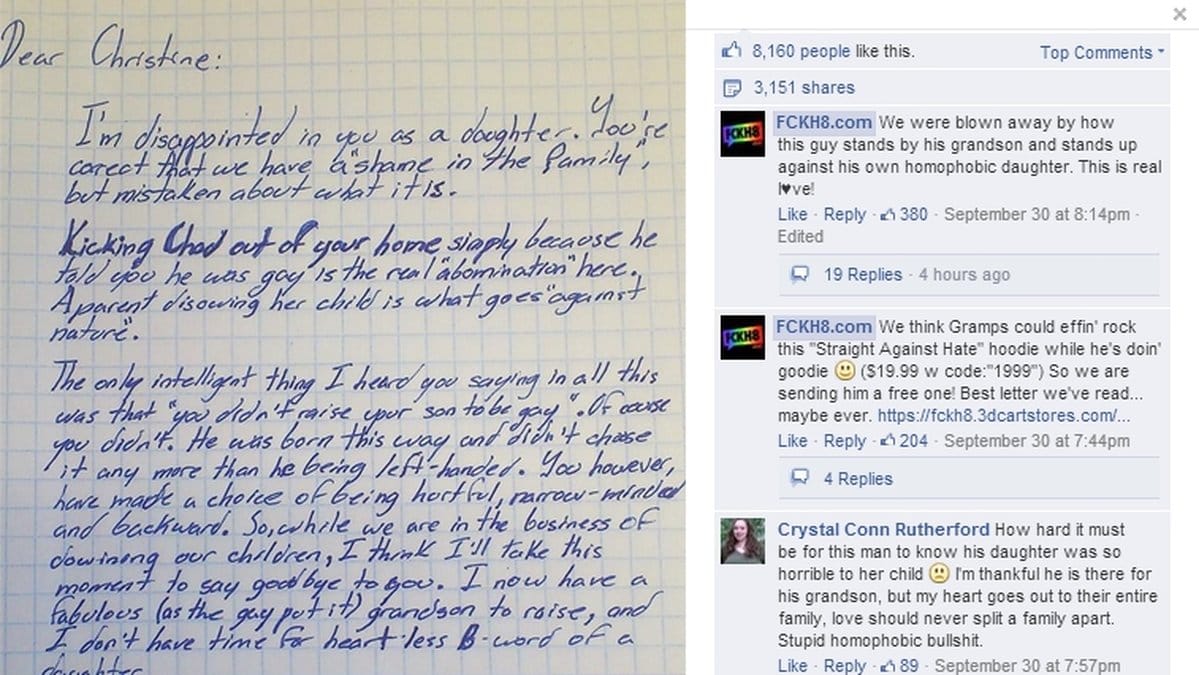 Dear Christine:
I'm disappointed in you as a daughter. You're
corect that we have a "shame in the family",
but mistaken about what it is.
Kicking Chad out of your home simply because he
told you he was gay is the real "abomination" here.
A parent disowing her child is what goes "against
nature".
The only intelligent thing I heard you saying in all this
was that "you didn't raise your son to be gay". Of couse
you didn't. He was born this way and didn't choose
it any more than he being left-handed. You however,
have made a choice of being hurtful, narrow-minded
and backward. So, while we are in the business of
dowinong our children, I think I'll take this
moment to say goodbye to you. I now have a
fabulous (as the gay put it) grandson to raise, and
I don't have time for heart-less B-word of a
daughter.
8,160 people like this. Top Comments
3,151 shares
FCKH8
FCKH8.com We were blown away by how
this guy stands by his grandson and stands up
against his own homophobic daughter. This is real
l♥ve!
Like · Reply · 380 · September 30 at 8:14pm ·
Edited
19 Replies · 4 hours ago
FCKH8
FCKH8.com We think Gramps could effin' rock
this "Straight Against Hate" hoodie while he's doin'
goodie 🙂 ($19.99 w code:"1999") So we are
sending him a free one! Best letter we've read...
maybe ever. https://fckh8.3dcartstores.com/...
Like · Reply · 204 · September 30 at 7:44pm
4 Replies
Crystal Conn Rutherford How hard it must
be for this man to know his daughter was so
horrible to her child 🙁 I'm thankful he is there for
his grandson, but my heart goes out to their entire
family, love should never split a family apart.
Stupid homophobic bullshit.
Like · Reply · 89 · September 30 at 7:57pm